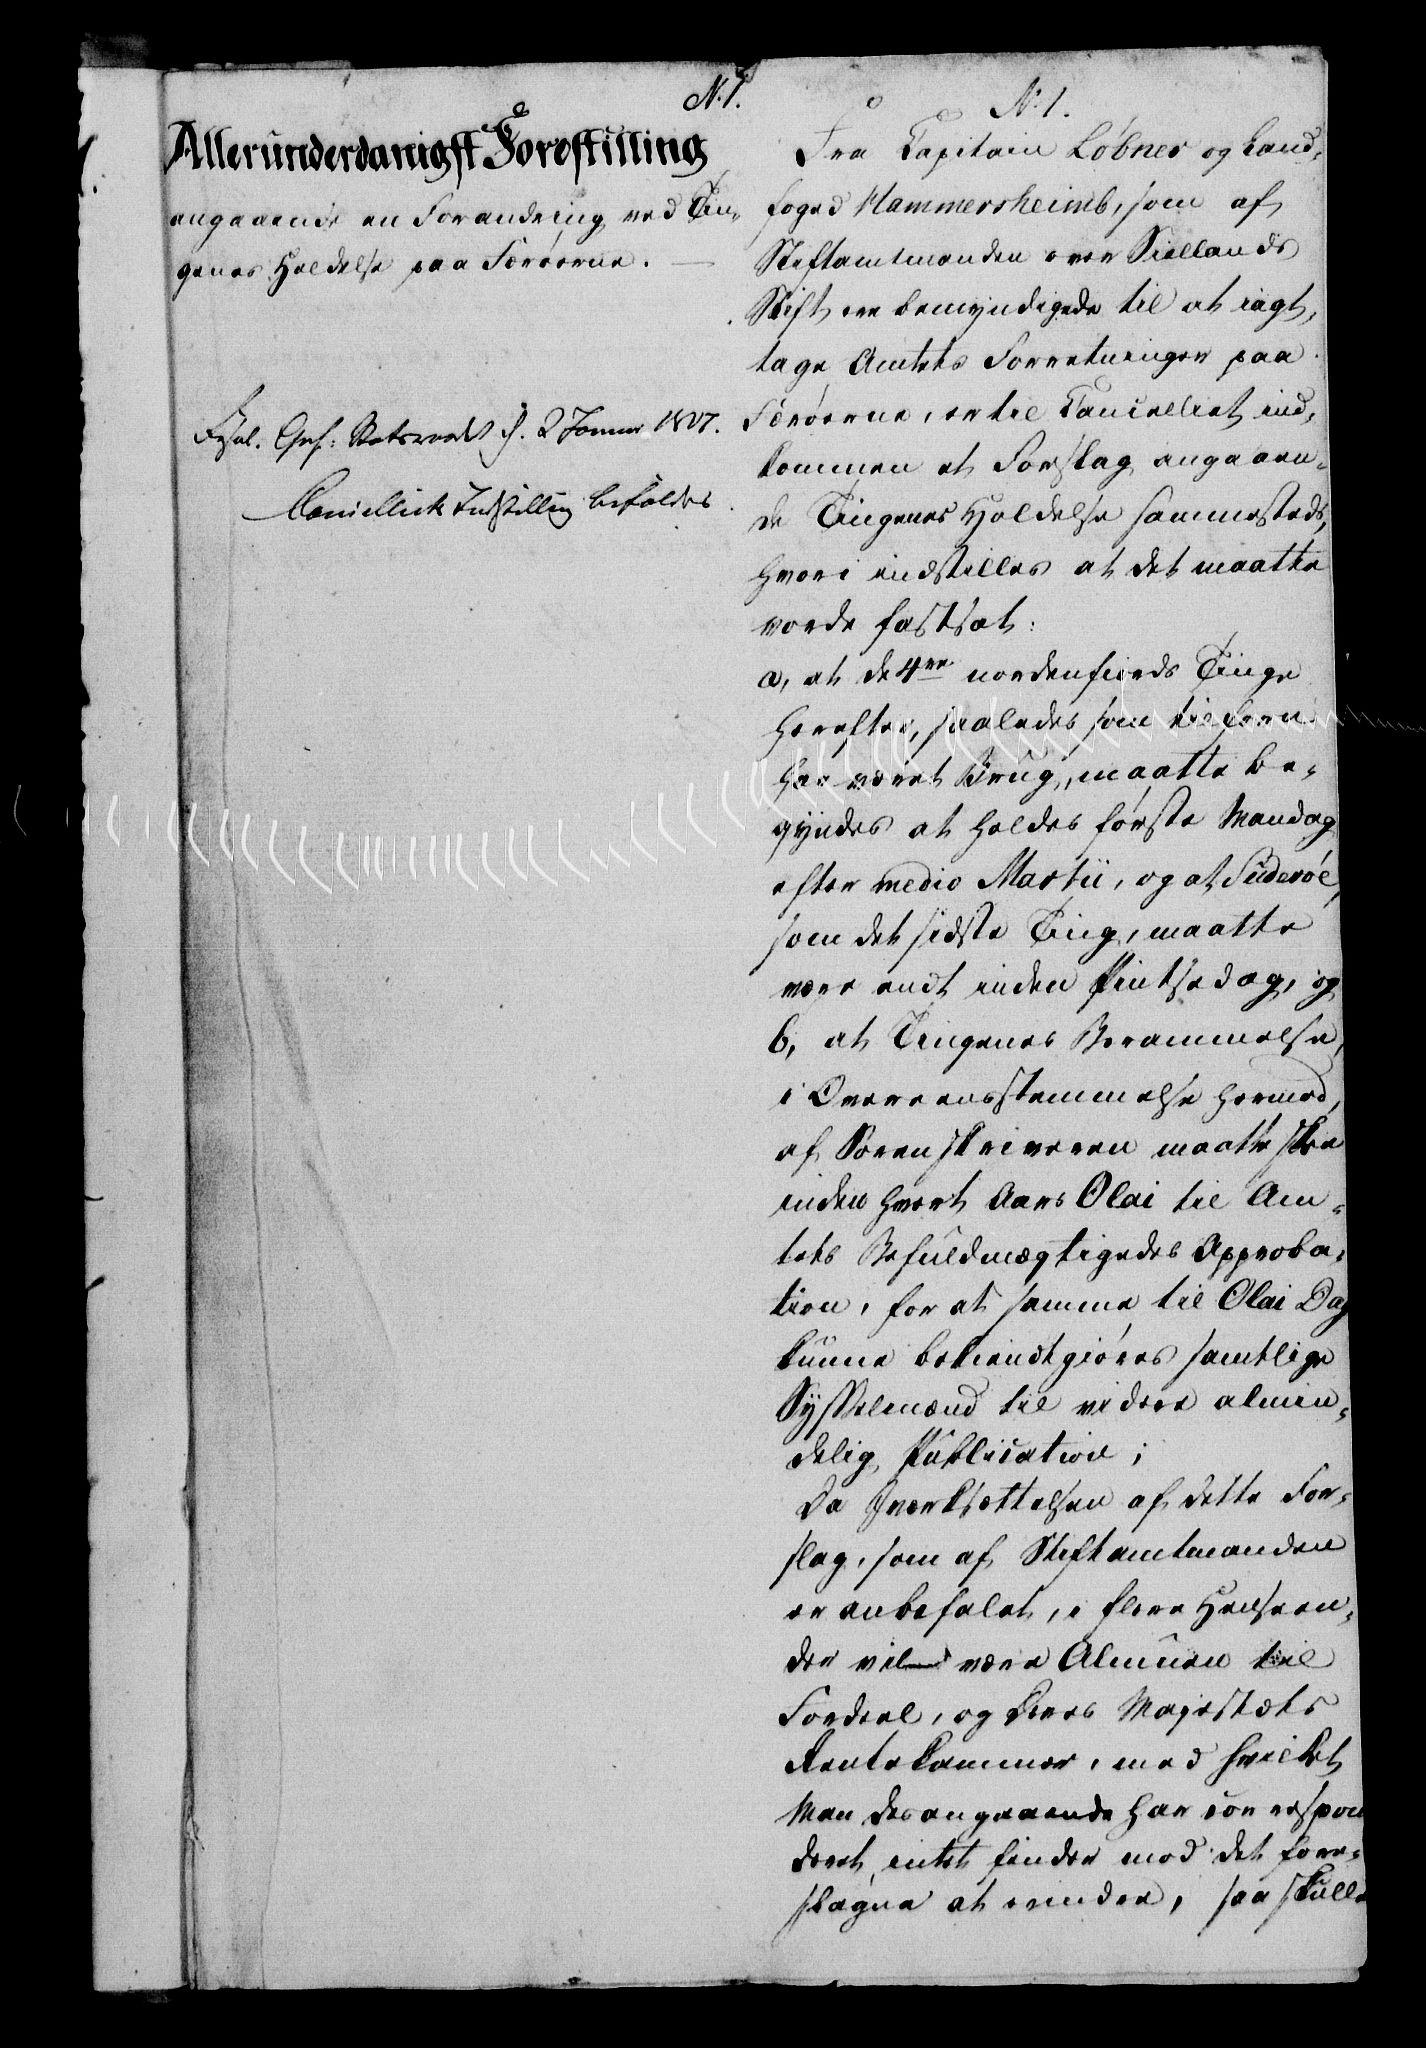 N. 1.
Allerunderdanigst Forestilling
angaaende en Forandring ved Tin-
genes Holdelse paa Færöerne.
Geh: Statsraadet d. 2 Januar 1807.
Cancelliets Indstilling bifaldes
N. 1.
Fra Capitain Löbner og Land-
foged Hammersheimb, som af
Stiftamtmanden over Siellands
Stift ere bemyndigede til at iagt-
tage Amtets Forretninger paa
Færöerne, er til Cancelliet ind-
kommen et Forslag angaaen-
de Tingenes Holdelse sammesteds,
hvori indstilles at det maatte
vorde fastsat:
a, at de 4re nordenfiords Tinge
herefter, saaledes som tilforn
har været Brug, maatte be-
gyndes at holdes förste Mandag
efter medio Martii, og at Suderöe,
som det sidste Ting, maatte
være endt inden Pintsedag, og
b, at Tingenes Berammelse,
i Overeensstemmelse hermed,
af Sorenskriveren maatte skee
inden hvert Aars Olai til Am-
tets Befuldmægtigedes Approba-
tion, for at samme til Olai Dag
kunne bekiendtgiöres samtlige
Sysselmænd til videre almin-
delig Publication;
Da Iværksættelsen af dette For-
slag, som af Stiftamtmanden
er anbefalet, i flere Henseen-
der vil være Almuen til
Fordeel, og Deres Majestæts
Rentekammer, med hvilket
Man desangaaende har correspon
deret, intet finder mod det fore-
slagne at erindre, saa skulle